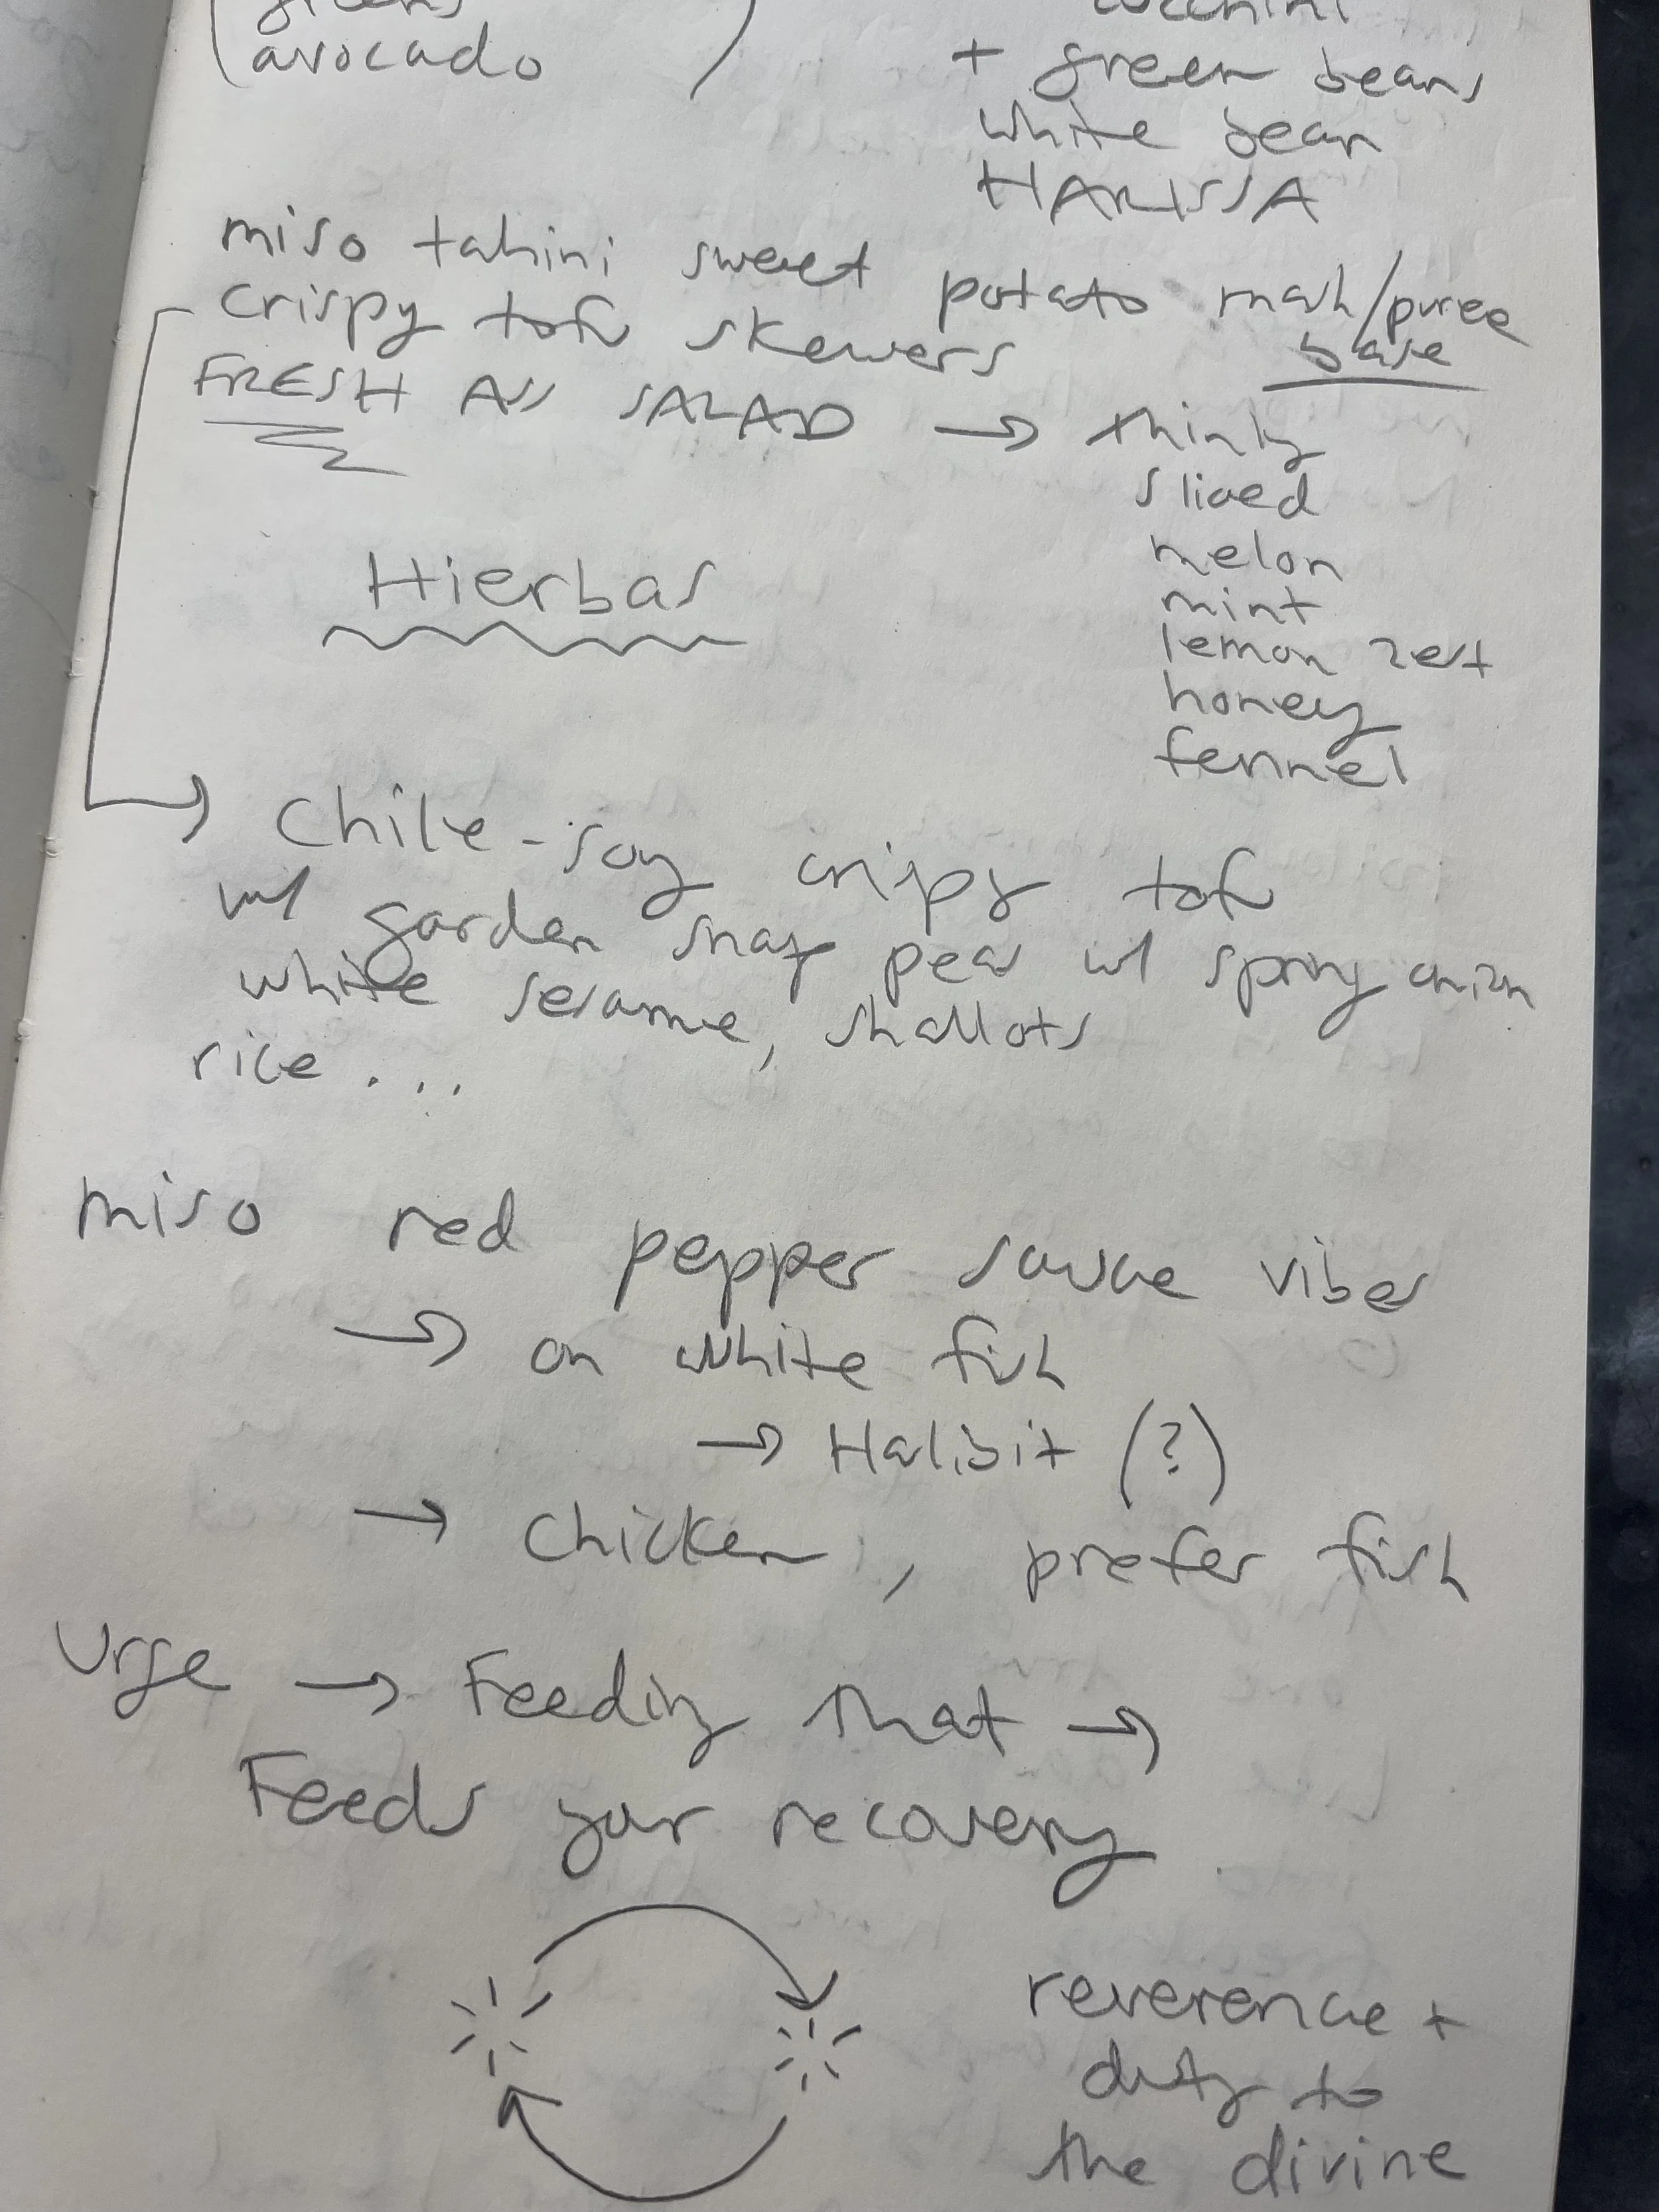 greens
(avocado )
zucchini
+ green beans
white bean
HARISSA
miso tahini sweet potato mash/puree
base
crispy tofu skewers
FRESH ASS SALAD → thinly
sliced
melon
mint
lemon zest
honey
fennel
Hierbas
→ Chile-soy crispy tofu
w/ garden snap peas w/ spring onion
white sesame, shallots
rice ...
miso red pepper sauce vibes
→ on white fish
→ Halibit (?)
→ chicken, prefer fish
Urge → Feeding that →
Feeds your recovery
reverence +
duty to
the divine